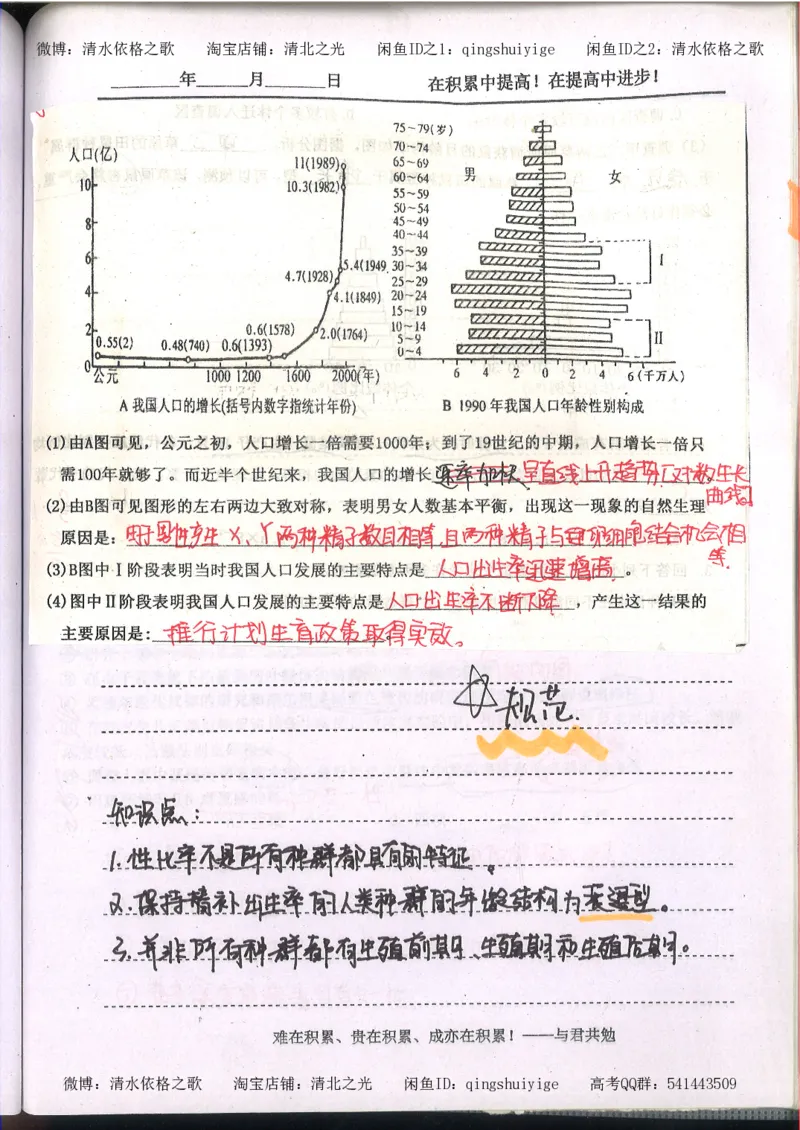 微博：清水依格之歌 淘宝店铺：清北之光 闲鱼ID之1：qingshuiyige 闲鱼ID之2：清水依格之歌
年 月 日 在积累中提高！在提高中进步！
人口(亿)
10
8
6
4
2
0
11(1989)
10.3(1982)
5.4(1949
4.7(1928)
4.1(1849)
2.0(1764)
0.6(1578)
0.55(2) 0.48(740) 0.6(1393)
公元 1000 1200 1600 2000(年)
A 我国人口的增长(括号内数字指统计年份)
75～79(岁)
70～74
65～69
60～64
55～59
50～54
45～49
40～44
35～39
30～34
25～29
20～24
15～19
10～14
5～9
0～4
男 女
I
II
6 4 2 0 2 4 6(千万人)
B 1990年我国人口年龄性别构成
(1)由A图可见，公元之初，人口增长一倍需要1000年；到了19世纪的中期，人口增长一倍只
需100年就够了。而近半个世纪来，我国人口的增长速率加快，呈直线上升趋势[对数生长
曲线]
(2)由B图可见图形的左右两边大致对称，表明男女人数基本平衡，出现这一现象的自然生理
原因是：由于男性产生X、Y两种精子数目相等且两种精子与卵细胞结合机会相
等.
(3)B图中Ⅰ阶段表明当时我国人口发展的主要特点是 人口出生率迅速增高 。
(4)图中Ⅱ阶段表明我国人口发展的主要特点是人口出生率不断下降 ，产生这一结果的
主要原因是：推行计划生育政策取得实效。
规范.
知识点：
1.性比率不是所有种群都具有的特征。
2.保持替补出生率的人类种群的年龄结构为衰退型。
3.并非所有种群都有生殖前期、生殖期和生殖后期。
难在积累、贵在积累、成亦在积累！——与君共勉
微博：清水依格之歌 淘宝店铺：清北之光 闲鱼ID：qingshuiyige 高考QQ群：541443509